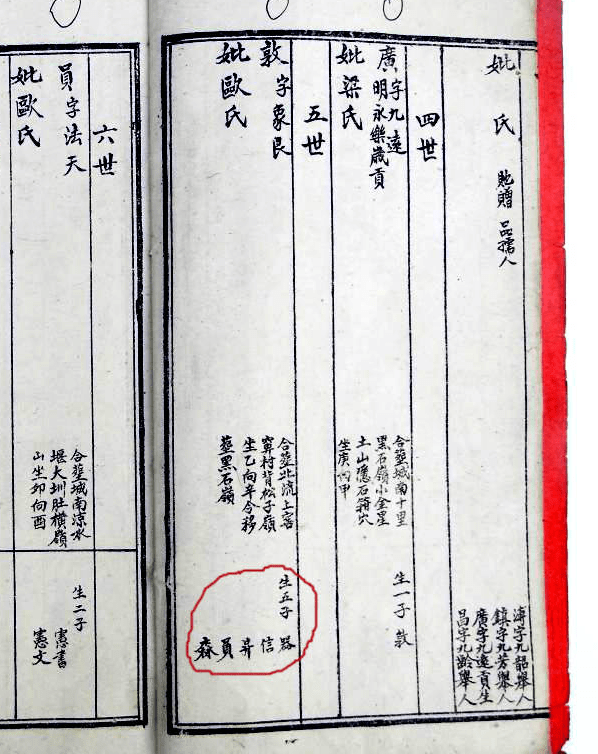 妣 氏 貤贈 品孺人
濤字九韶舉人
鎮字九芳舉人
廣字九遠貢生
昌字九齡舉人
四世
廣字九遠
明永樂歲貢
妣梁氏
合塟城南十里
黑石嶺小金星
土山隱石箱穴
坐庚向甲
生一子 敦
五世
敦字象艮
妣歐氏
合塟北流上窖
寗村背松子嶺
坐乙向辛今移
塟黑石嶺
生五子 器
信
昇
員
六世
員字法天
妣歐氏
合塟城南凉水
堰大圳肚橫嶺
山坐卯向酉
生二子 憲書
憲文